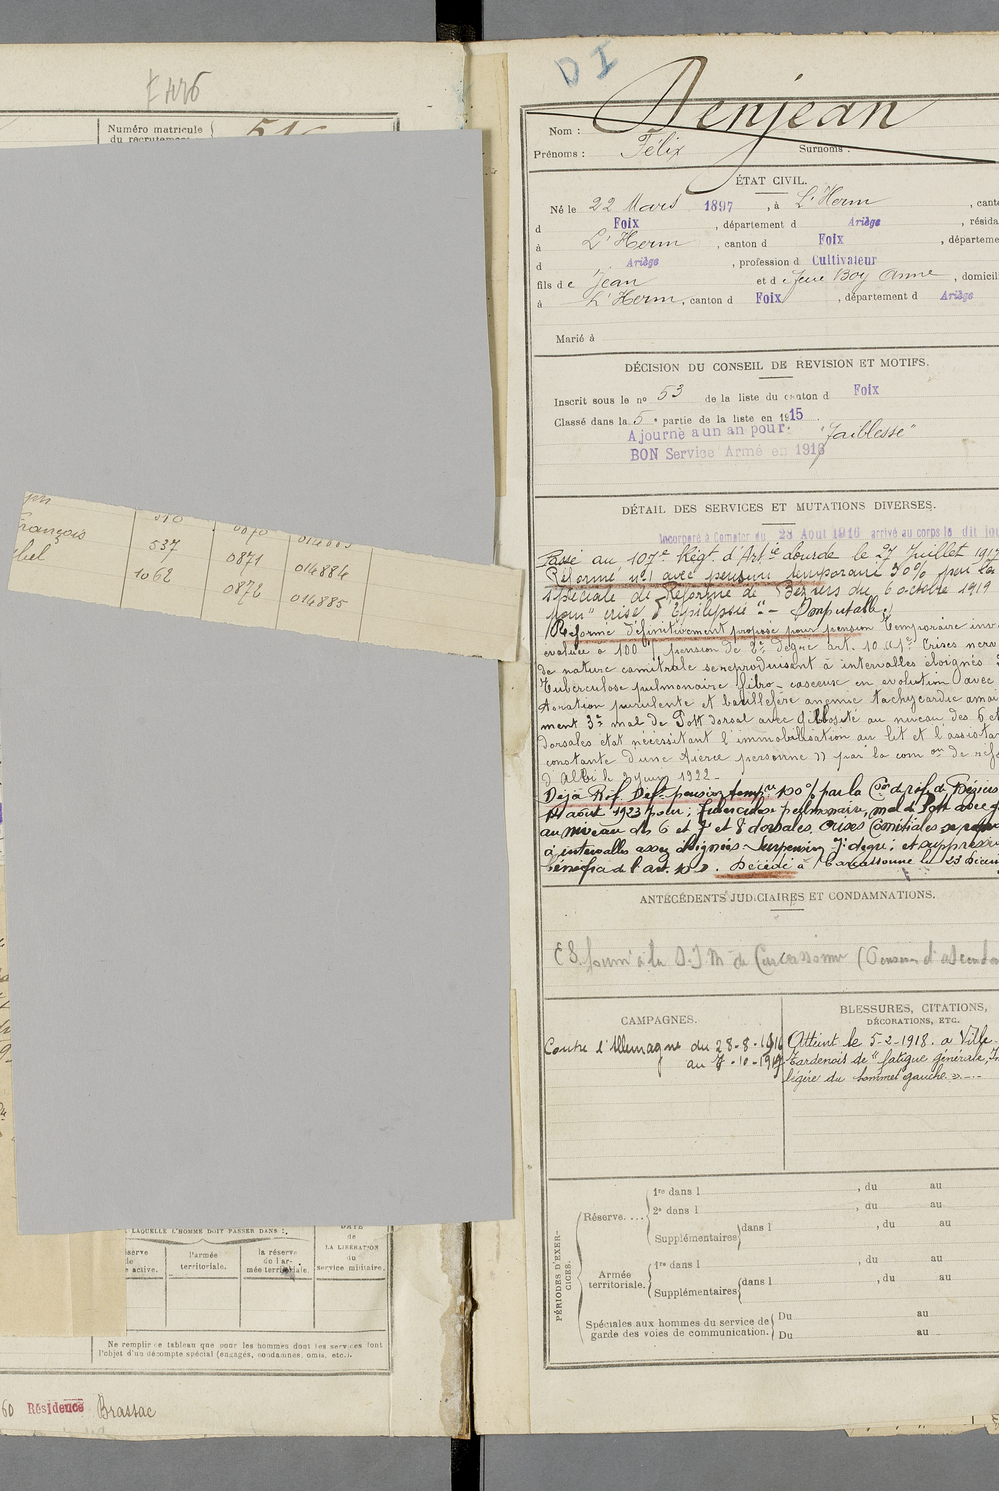 Numéro matricule
du recrutement
François
537
0871
014884
1062
0872
014885
LAQUELLE L'HOMME DOIT PASSER DANS :
DATE
de
LA LIBÉRATION
du
service militaire.
l'armée
territoriale.
la réserve
de l'ar-
mée territoriale.
Ne remplir ce tableau que pour les hommes dont les services font
l'objet d'un décompte spécial (engagés, condamnés, omis, etc.).
60 Résidence Brassac
D I
Nom : Denjean
Prénoms : Félix Surnoms :
ÉTAT CIVIL.
Né le 22 Mars 1897, à L'Herm, canto
d Foix, département d Ariège, résida
à L'Herm, canton d Foix, départeme
d Ariège, profession d Cultivateur
fils de Jean et de feue Boy Anne, domicili
à L'Herm, canton d Foix, département d Ariège
Marié à
DÉCISION DU CONSEIL DE REVISION ET MOTIFS.
Inscrit sous le no 53 de la liste du canton d Foix
Classé dans la 5e partie de la liste en 1915.
Ajourné a un an pour "faiblesse"
BON Service Armé en 1916
DÉTAIL DES SERVICES ET MUTATIONS DIVERSES.
Incorporé à Compter du 28 Aout 1916 arrivé au corps le dit jou
Passé au 107e Régt d'Artie Lourde le 27 Juillet 1917
Réformé no1 avec pension temporaire 30% par la
spéciale de Réforme de Béziers du 6 octobre 1919
pour "crise d'Epilepsie" - Imputable.
Réformé définitivement proposé pour pension temporaire inv
évaluée à 100% pension de 2e degré art. 10 Crises nerv
de nature comitiale se reproduisant à intervalles éloignés
Tuberculose pulmonaire fibro-caseuse en évolution avec
purulente et bacillifère anémie tachycardie amai
ment 3o mal de Pott dorsal avec gibbosité au niveau des 6 et
dorsales état nécessitant l'immobilisation au lit et l'assistan
constante d'une tierce personne par la com on de réf
d'Albi le 2 juin 1922 -
Déjà Réf. Def. pension tempre 100% par la Con de réf. de Béziers
14 août 1923 pour ; tuberculose pulmonaire, mal de Pott avec g
au niveau des 6 et 7 et 8 dorsales, crises comitiales se repro
à intervalles assez éloignés. et suppressi
bénéfice de l'art. 10. Décédé à Carcassonne le 23 Décem
ANTÉCÉDENTS JUDICIAIRES ET CONDAMNATIONS.
E.S. fourni à la S.I.M. de Carcassonne (Pension d'ascendan
CAMPAGNES.
Contre l'Allemagne du 28-8-1916
au 7-10-1919
BLESSURES, CITATIONS,
DÉCORATIONS, ETC.
Atteint le 5-2-1918. a Ville-
Tardenois de "fatigue générale,
légère du sommet gauche".
PÉRIODES D'EXER-
CICES.
Réserve....
1re dans l , du au
2e dans l , du au
Supplémentaires dans l , du au
Armée
territoriale.
1re dans l , du au
Supplémentaires dans l , du au
Spéciales aux hommes du service de
garde des voies de communication.
Du au
Du au